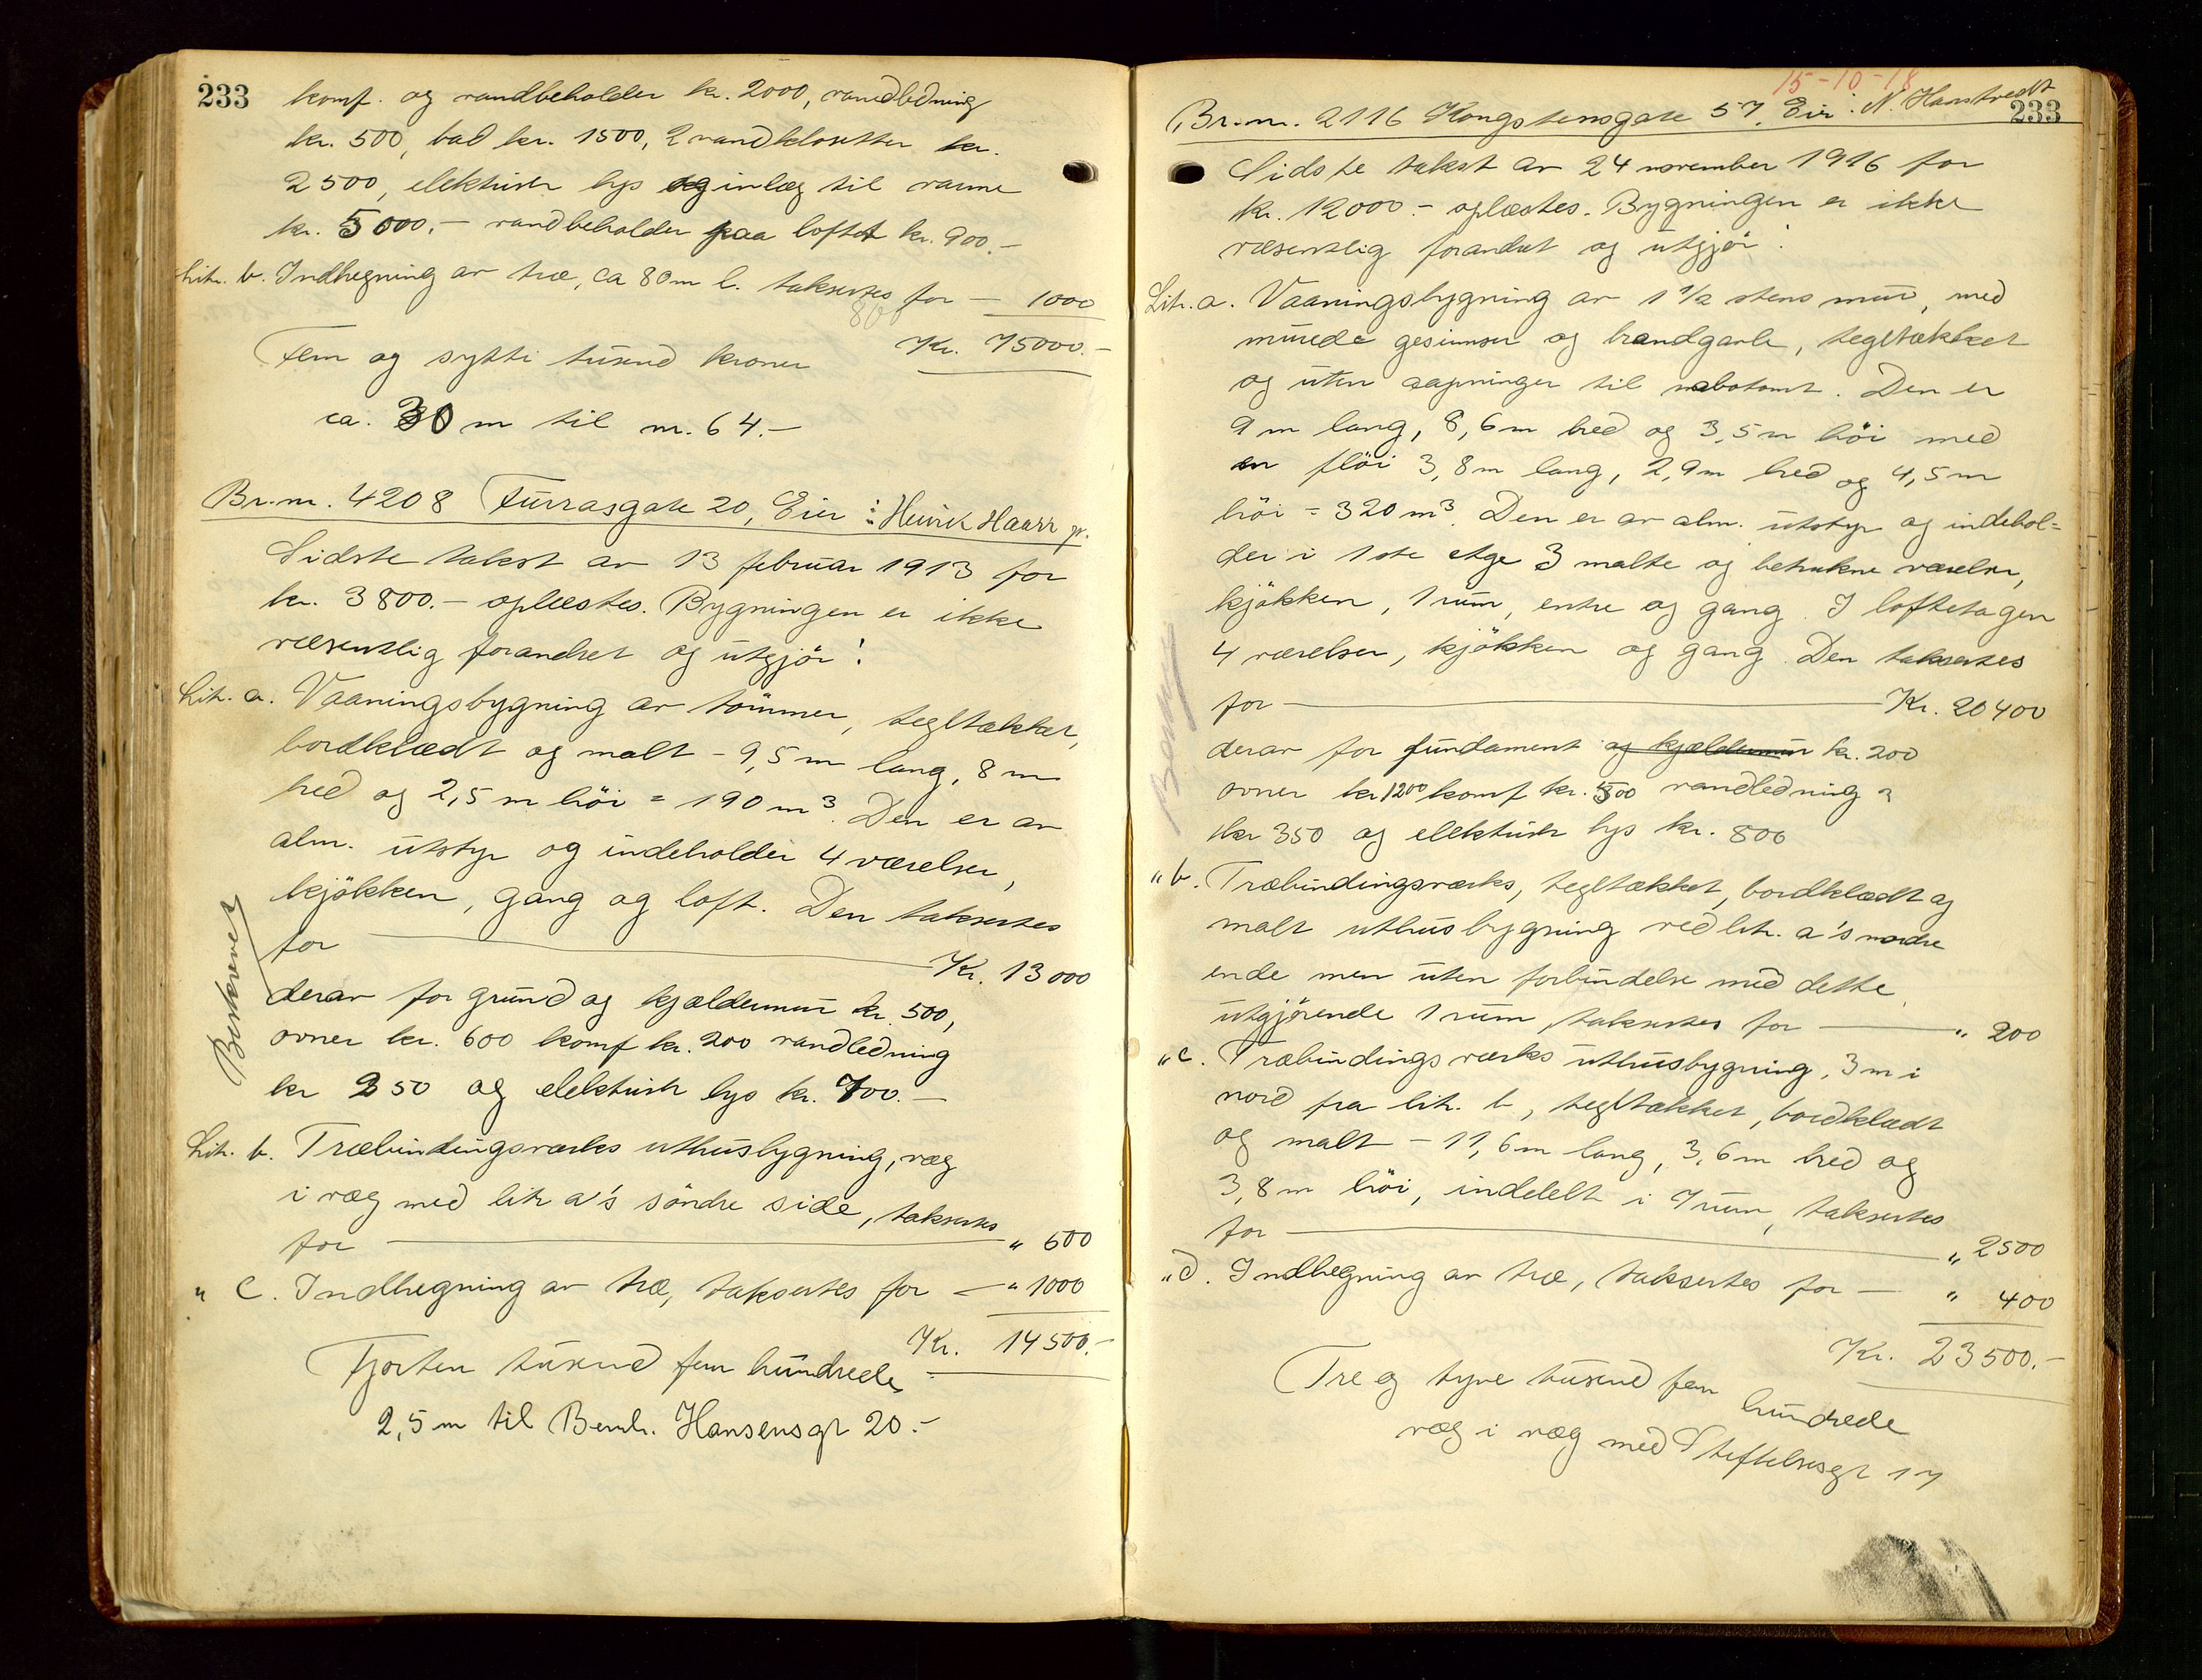 233
komf. og vandbeholder kr. 2000, vandledning
kr. 500, bad kr. 1500, 2 vandklosetter kr.
2500, elektrisk lys og inlæg til varme
kr. 5000.- vandbeholder paa loftet kr. 900.-
Litr. b. Indhegning av træ, ca 80 m l. taksertes for — 1000
800
Fem og sytti tusend kroner Kr. 75000.-
ca. 30 m til nr. 64.-
Br.nr. 4208 Furrasgate 20, Eier: Henrik Haarr jr.
Sidste takst av 13 februar 1913 for
kr. 3800.- oplæstes. Bygningen er ikke
væsentlig forandret og utgjør:
Litr. a. Vaaningsbygning av tømmer, tegltækket,
bordklædt og malt - 9,5 m lang, 8 m
bred og 2,5 m høi = 190 m³. Den er av
alm. utstyr og indeholder 4 værelser,
kjøkken, gang og loft. Den taksertes
for — Kr. 13000
Beskrevet
derav for grund og kjældermur kr. 500,
ovner kr. 600 komf kr. 200 vandledning
kr 250 og elektrisk lys kr. 700.-
Litr. b. Træbindingsværks uthusbygning, væg
i væg med litr a's søndre side, taksertes
for — " 500
" c. Indhegning av træ, taksertes for — " 1000
Kr. 14500.-
Fjorten tusend fem hundrede
2,5 m til Bernh. Hansensgt 20.-
15-10-18
233
Br.nr. 2116 Kongstensgate 57. Eier: N. Haustvedt
Sidste takst av 24 november 1916 for
kr. 12000.- oplæstes. Bygningen er ikke
væsentlig forandret og utgjør:
Litr. a. Vaaningsbygning av 1 1/2 stens mur, med
murede gesimser og brandgavle, tegltækket
og uten aapninger til nabotomt. Den er
9 m lang, 8,6 m bred og 3,5 m høi med
en fløi 3,8 m lang, 2,9 m bred og 4,5 m
høi = 320 m³. Den er av alm. utstyr og indehol=
der i 1ste etge 3 malte og betrukne værelser,
kjøkken, 1 rum, entre og gang. I loftetagen
4 værelser, kjøkken og gang. Den taksertes
for — Kr. 20400
derav for fundament og kjældermur kr. 200
ovner kr 1200 komf kr. 500 vandledning
kr 350 og elektrisk lys kr. 800
" b. Træbindingsværks, tegltækket, bordklædt og
malt uthusbygning ved litr. a's nordre
ende men uten forbindelse med dette,
utgjørende 1 rum, taksertes for — " 200
" c. Træbindingsværks uthusbygning, 3 m i
nord fra litr. b, tegltækket, bordklædt
og malt - 11,6 m lang, 3,6 m bred og
3,8 m høi, indelelt i 7 rum, taksertes
for — " 2500
" d. Indhegning av træ, taksertes for — " 400
Kr. 23500.-
Tre og tyve tusend fem hundrede
væg i væg med Stiftelsesgt 17